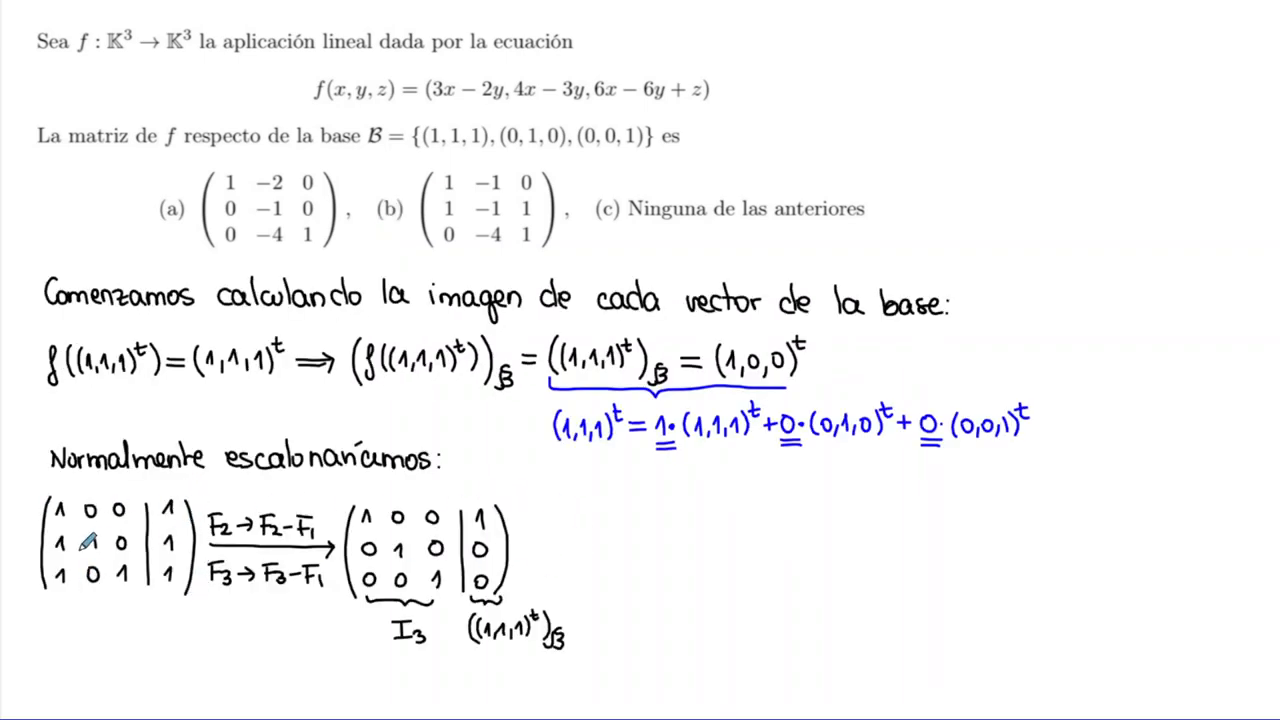 Sea f : 𝕂³ → 𝕂³ la aplicación lineal dada por la ecuación
f(x, y, z) = (3x − 2y, 4x − 3y, 6x − 6y + z)
La matriz de f respecto de la base ℬ = {(1, 1, 1), (0, 1, 0), (0, 0, 1)} es
(a) ( 1 −2 0 ; 0 −1 0 ; 0 −4 1 ) , (b) ( 1 −1 0 ; 1 −1 1 ; 0 −4 1 ) , (c) Ninguna de las anteriores
Comenzamos calculando la imagen de cada vector de la base:
f((1,1,1)ᵗ) = (1,1,1)ᵗ ⟹ (f((1,1,1)ᵗ))_ℬ = ((1,1,1)ᵗ)_ℬ = (1,0,0)ᵗ
(1,1,1)ᵗ = 1·(1,1,1)ᵗ + 0·(0,1,0)ᵗ + 0·(0,0,1)ᵗ
Normalmente escalonaríamos:
( 1 0 0 | 1 ; 1 1 0 | 1 ; 1 0 1 | 1 ) F₂→F₂−F₁ F₃→F₃−F₁ ( 1 0 0 | 1 ; 0 1 0 | 0 ; 0 0 1 | 0 )
I₃ ((1,1,1)ᵗ)_ℬ